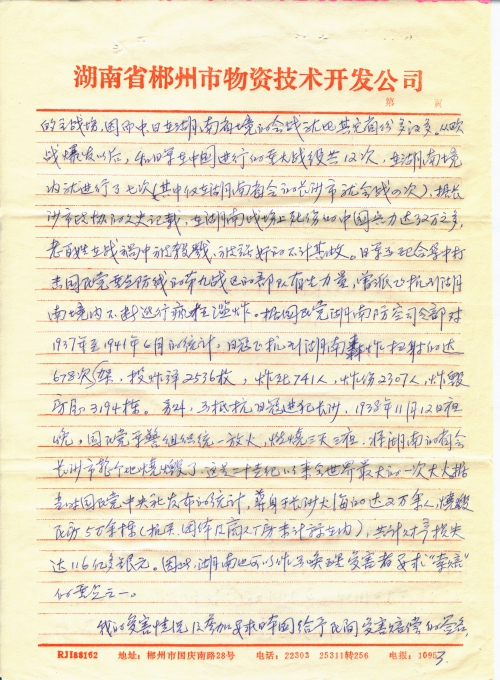 湖南省郴州市物资技术开发公司
第 页
的主战场，因而中日在湖南省境的会战就比其它省份多许多。从欧
战爆发以后，和日军在中国进行的重大战役共12次，在湖南境
内就进行了七次（其中仅在湖南省会的长沙市就会战四次），据长
沙市政协的文史记载，在湖南战场上死伤的中国兵力达32万之多，
老百姓在战祸中被残戮，被奸的不计其数。日军还配合集中打
击国民党要点防线的第九战区的部队有生力量，常派飞机到湖
南境内不断进行疯狂滥炸。据国民党湖南防空司令部对
1937年至1941年6月的统计，日寇飞机到湖南轰炸扫射的达
678次架，投炸弹2536枚，炸死741人，炸伤2307人，炸毁
房屋3194栋。另外，为抵抗日寇进犯长沙，1938年11月12日夜
晚，国民党军警组织统一放火，燃烧三天三夜，将湖南的省会
长沙市整个地烧毁了，这是二十世纪以来全世界最大的一次大火。据
当时国民党中央社发布的统计，葬身于长沙火海的达2万余人，烧毁
民房5万余栋（机关、团体及商人厂房未计算在内），共计财产损失
达116亿多银元。因此，湖南也可以作为唤起受害者要求“索赔”
的重点之一。
我的受害情况及参加要求日本国给予民间受害赔偿的签名，
RJ188162 地址：郴州市国庆南路28号 电话：22303 25311转256 电报：1095
3.